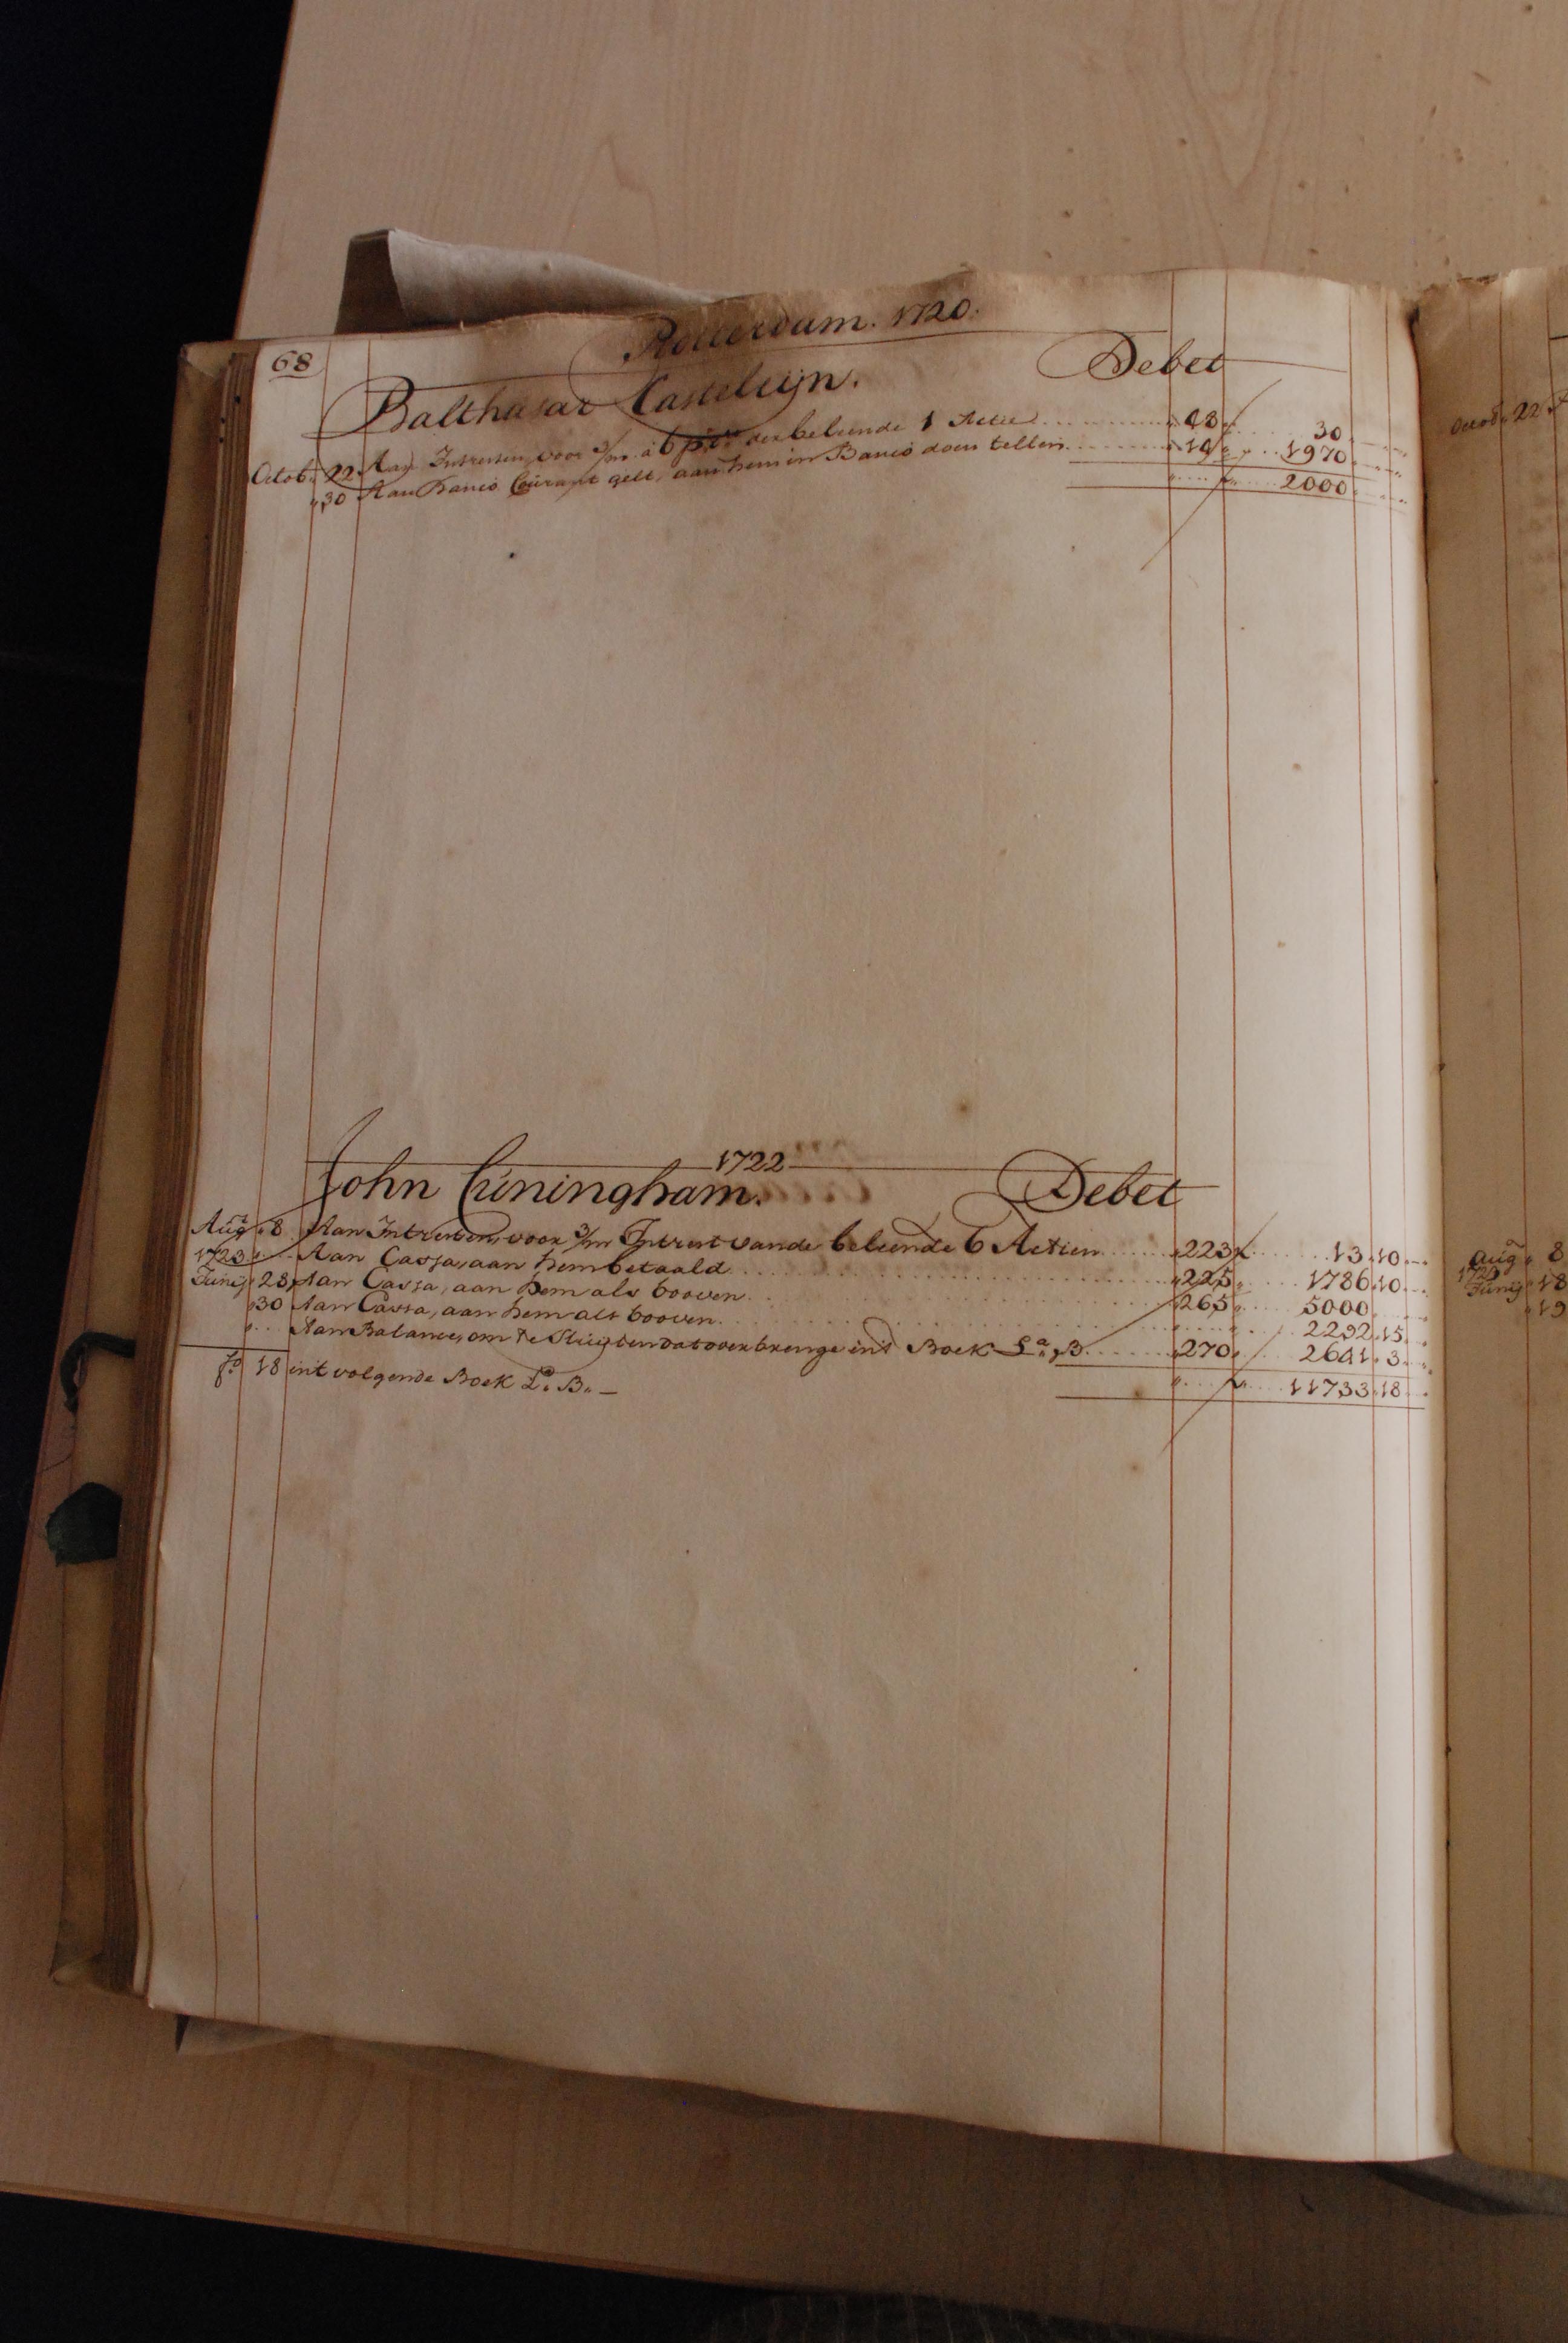 Rotterdam. 1720.
68
Balthasar Casteleijn. Debet
Octob. 22 Aan Intresten, voor 3/m a 6 p. der beleende 1 Actie 48 30
30 Aan Banco Courant gelt, aan hem in Banco doen tellen 14 1970
2000
1722
John Cuningham. Debet
Aug. 8 Aan Intresten, voor 3/m Intrest vande beleende 6 Actien 223 13 10
Aan Cassa, aan hem betaald 225 1786 10
1723
Junij 28 Aan Cassa, aan hem als booven 265 5000
30 Aan Cassa, aan hem als booven 2292 15
Aan Balance, om te Sluijten dat overbrenge int Boek La. B. 270 2641 3
fo. 18 int volgende Boek La. B. 11733 18
Octob. 22
Aug. 8
1723
Junij 18
19